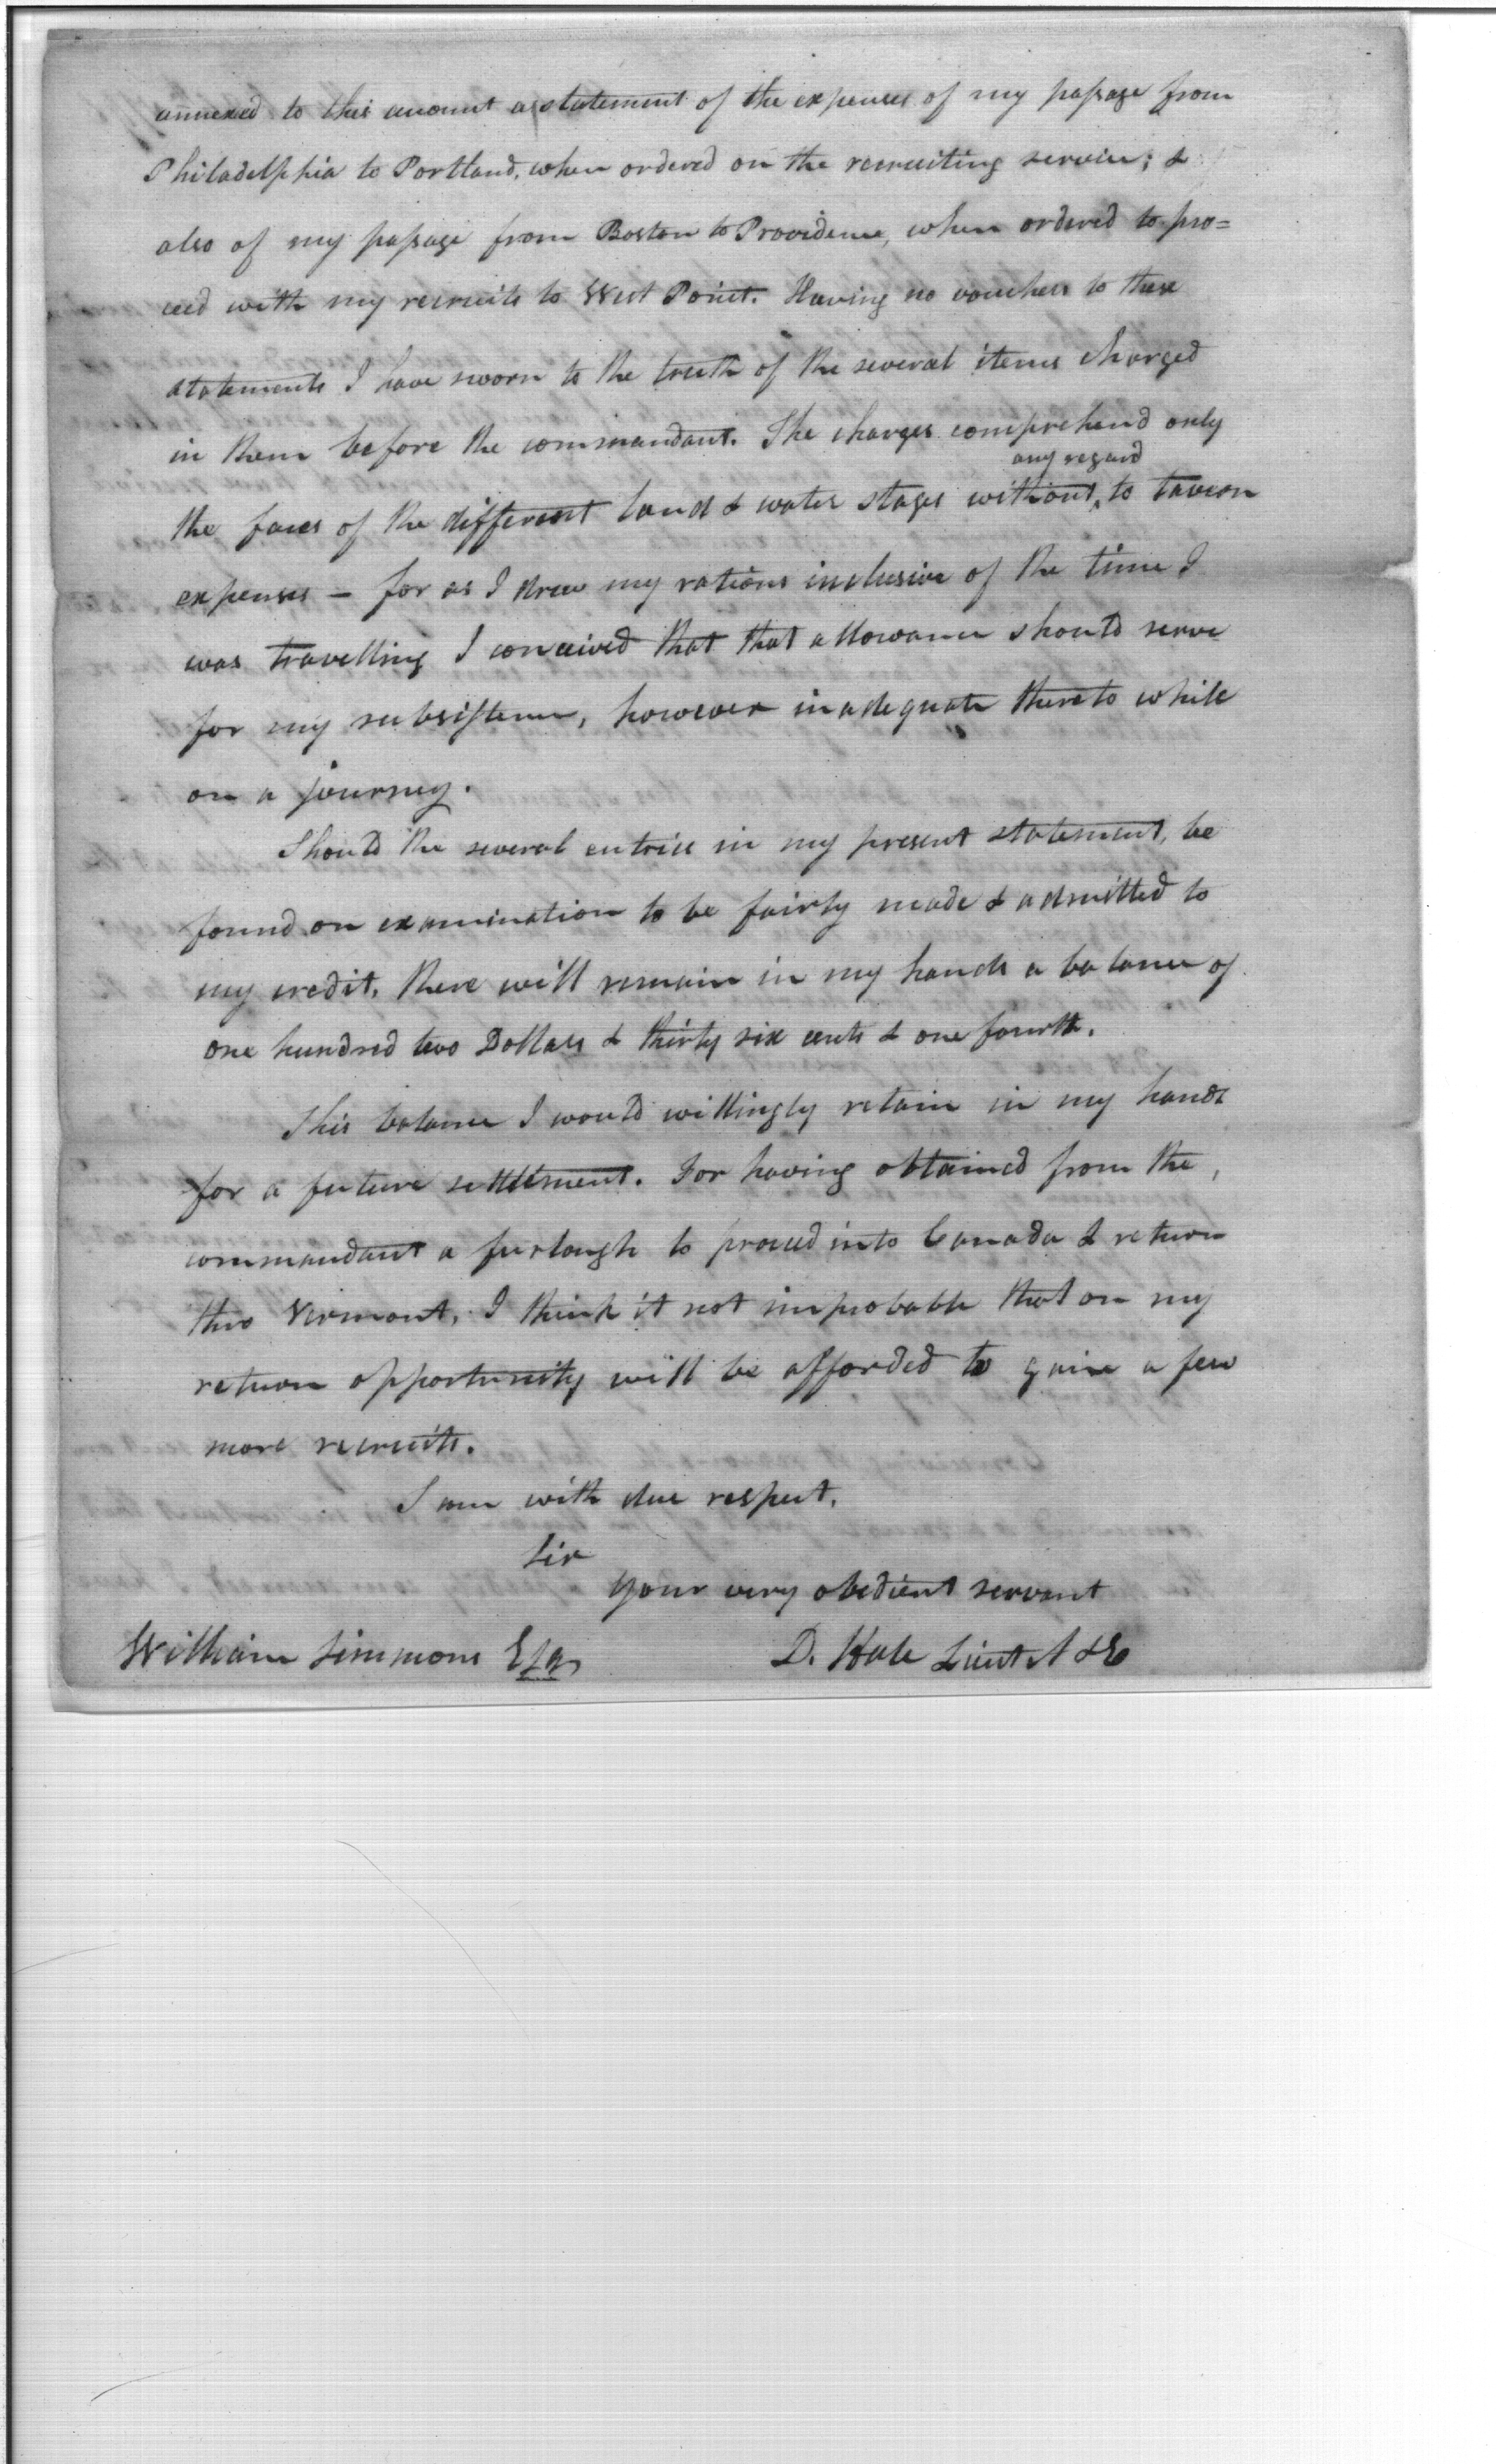 annexed to this account a statement of the expenses of my passage from
Philadelphia to Portland, when ordered on the recruiting service; &
also of my passage from Boston to Providence, when ordered to pro=
ceed with my recruits to West Point. Having no vouchers to these
statements I have sworn to the truth of the several items charged
in them before the commandant. The charges comprehend only
any regard
the fares of the different land & water stages without ‸ to tavern
expenses — for as I drew my rations inclusive of the time I
was travelling I conceived that that allowance should serve
for my subsistence, however inadequate thereto while
on a journey.
Should the several entries in my present statement, be
found on examination to be fairly made & admitted to
my credit, there will remain in my hands a balance of
one hundred two Dollars & thirty six cents & one fourth.
This balance I would willingly retain in my hands
for a future settlement. For having obtained from the
commandant a furlough to proceed into Canada & return
thro Vermont, I think it not improbable that on my
return opportunity will be afforded to gain a few
more recruits.
I am with due respect,
Sir
your very obedient servant
William Simmons Esqr
D. Hale Lieut A & E